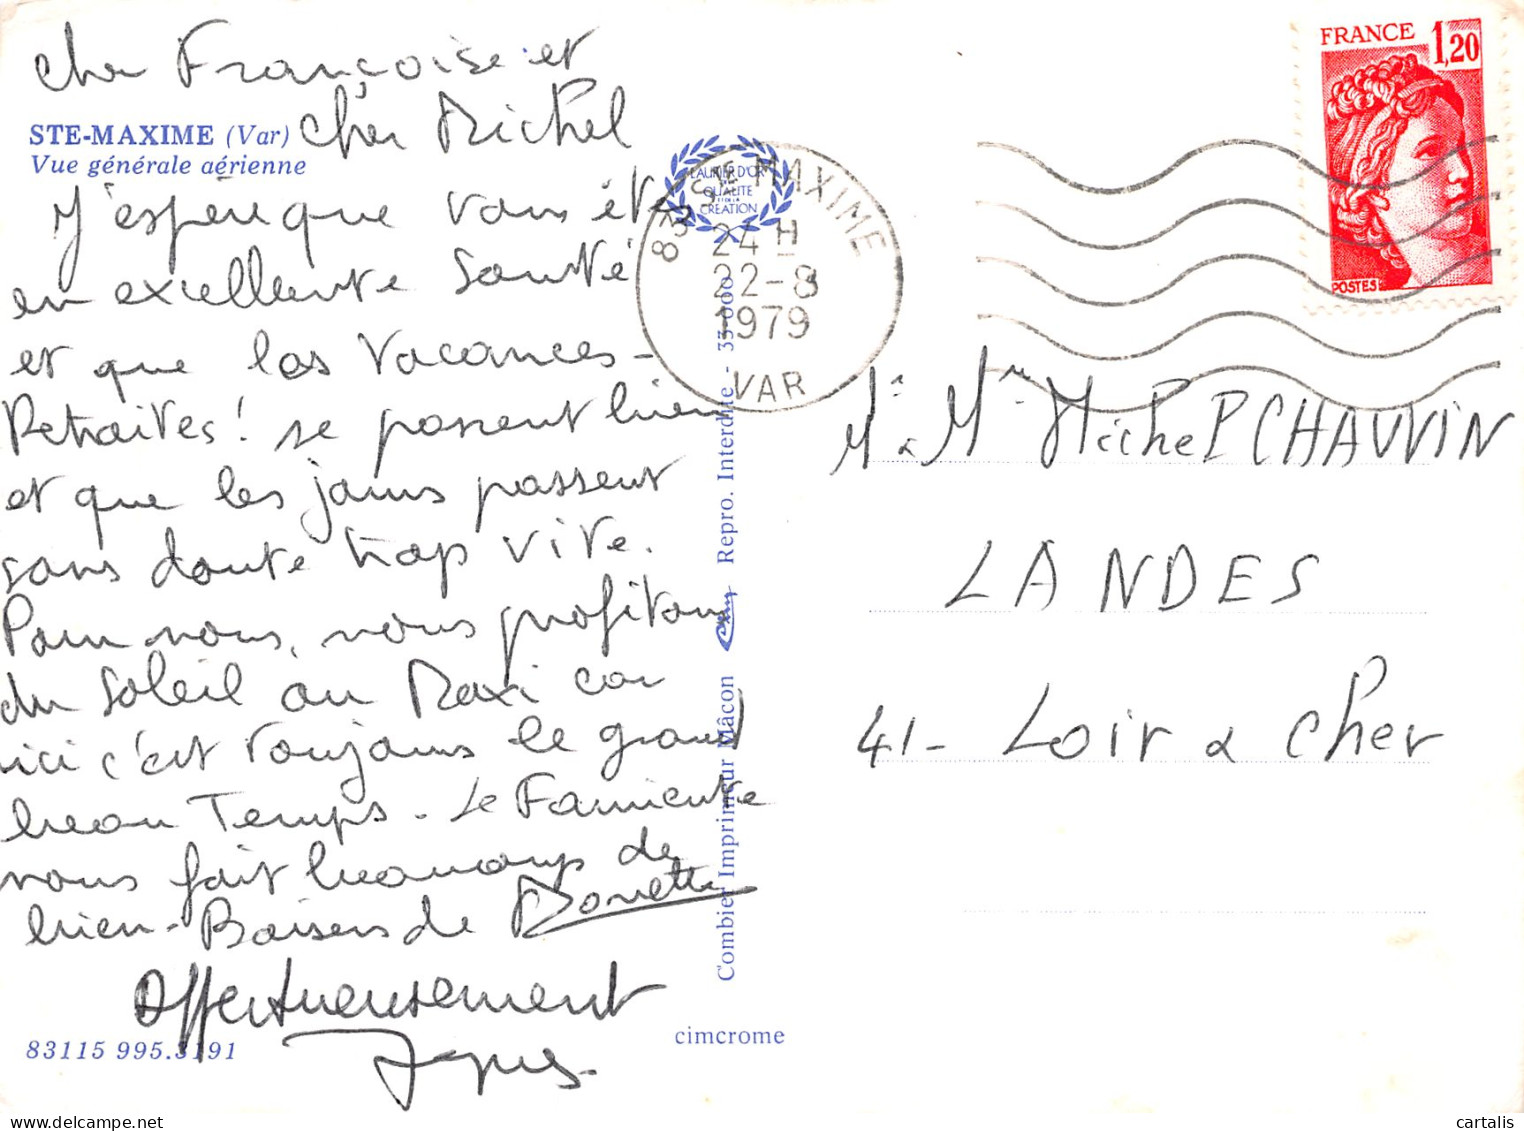 Cher Françoise et
cher Michel
STE-MAXIME (Var)
Vue générale aérienne
J'espère que vous êt
en excellente santé
et que les vacances-
Retraites! se passent bien
et que les jours passent
sans doute trop vite.
Pour nous, nous profitons
du soleil au Maxi car
ici c'est toujours le grand
beau Temps. Le Farniente
nous fait beaucoup de
bien. Baisers de
Affectueusement
83115 995.3191
cimcrome
Combier Imprimeur Mâcon
Repro. Interdite - 33-000
LAURIER D'OR
QUALITE
CREATION
83 STE MAXIME
24 H
22-8
1979
VAR
FRANCE 1,20
POSTES
Mr & Mme Michel CHAUVIN
LANDES
41- Loir & Cher
cartalis
delcampe.net